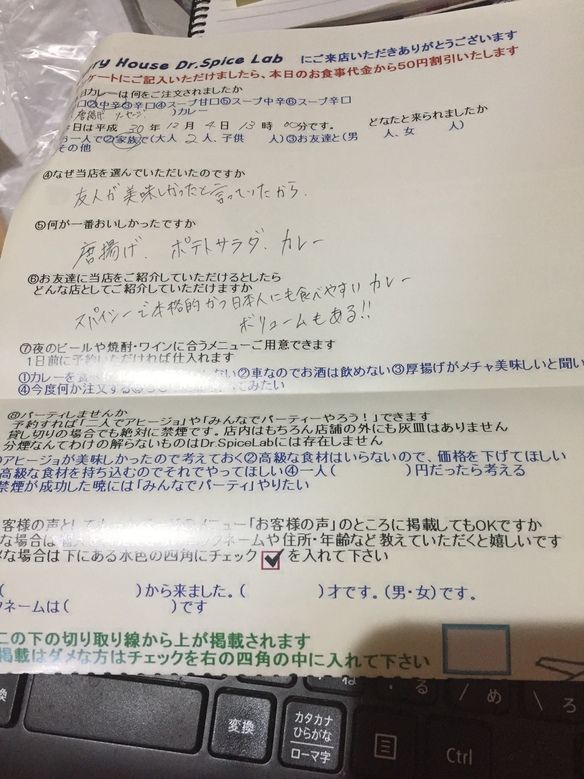 ry House Dr.Spice Lab にご来店いただきありがとうございます
ケートにご記入いただけましたら、本日のお食事代金から50円割引いたします
カレーは何をご注文されましたか
口②中辛③辛口④スープ甘口⑤スープ中辛⑥スープ辛口
唐揚げ
日は平成 30 年 12 月 4 日 13 時 00分です。 どなたと来られましたか
お一人で②家族で(大人 2人、子供 人)③お友達と(男 人、女 人)
その他
④なぜ当店を選んでいただいたのですか
友人が美味しかったと言っていたから。
⑤何が一番おいしかったですか
唐揚げ、ポテトサラダ、カレー
⑥お友達に当店をご紹介していただけるとしたら
どんな店としてご紹介していただけますか
スパイシーで本格的かつ日本人にも食べやすいカレー
ボリュームもある!!
⑦夜のビールや焼酎・ワインに合うメニューご用意できます
1日前に予約いただければ仕入れます
①カレーを食べ ない②車なのでお酒は飲めない③厚揚げがメチャ美味しいと聞い
④今度何か注文する てみたい
⑧パーティしませんか
予約すれば「二人でアヒージョ」や「みんなでパーティーやろう!」できます
貸し切りの場合でも絶対に禁煙です。店内はもちろん店舗の外にも灰皿はありません
分煙なんてわけの解らないものはDr.SpiceLabには存在しません
アヒージョが美味しかったので考えておく②高級な食材はいらないので、価格を下げてほしい
高級な食材を持ち込むのでそれでやってほしい④一人( )円だったら考える
禁煙が成功した暁には「みんなでパーティ」やりたい
客様の声として メニュー「お客様の声」のところに掲載してもOKですか
な場合は ネームや住所・年齢など教えていただくと嬉しいです
な場合は下にある水色の四角にチェック ✔ を入れて下さい
( )から来ました。( )才です。(男・女)です。
クネームは( )です
この下の切り取り線から上が掲載されます
掲載はダメな方はチェックを右の四角の中に入れて下さい
変換
変換
カタカナ
ひらがな
ローマ字
Ctrl
ね
る
/ め
\ ろ